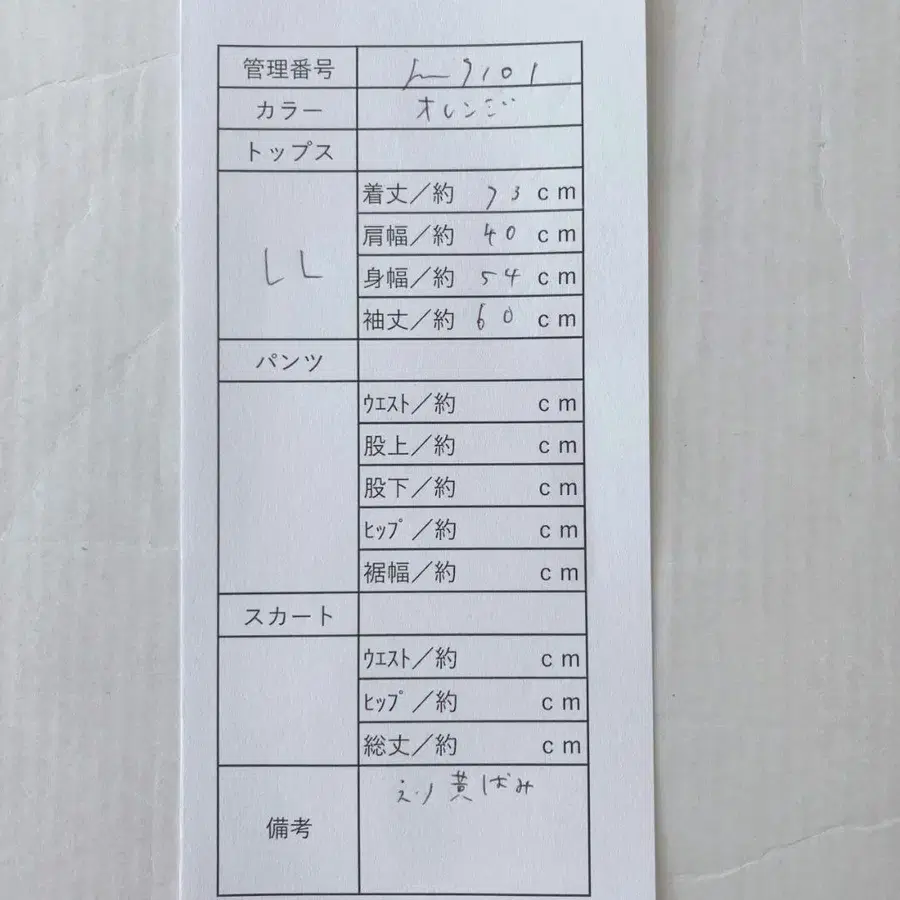 管理番号
カラー オレンジ
トップス
LL
着丈／約 73 cm
肩幅／約 40 cm
身幅／約 54 cm
袖丈／約 60 cm
パンツ
ｳｴｽﾄ／約 cm
股上／約 cm
股下／約 cm
ﾋｯﾌﾟ／約 cm
裾幅／約 cm
スカート
ｳｴｽﾄ／約 cm
ﾋｯﾌﾟ／約 cm
総丈／約 cm
備考 えり黄ばみ